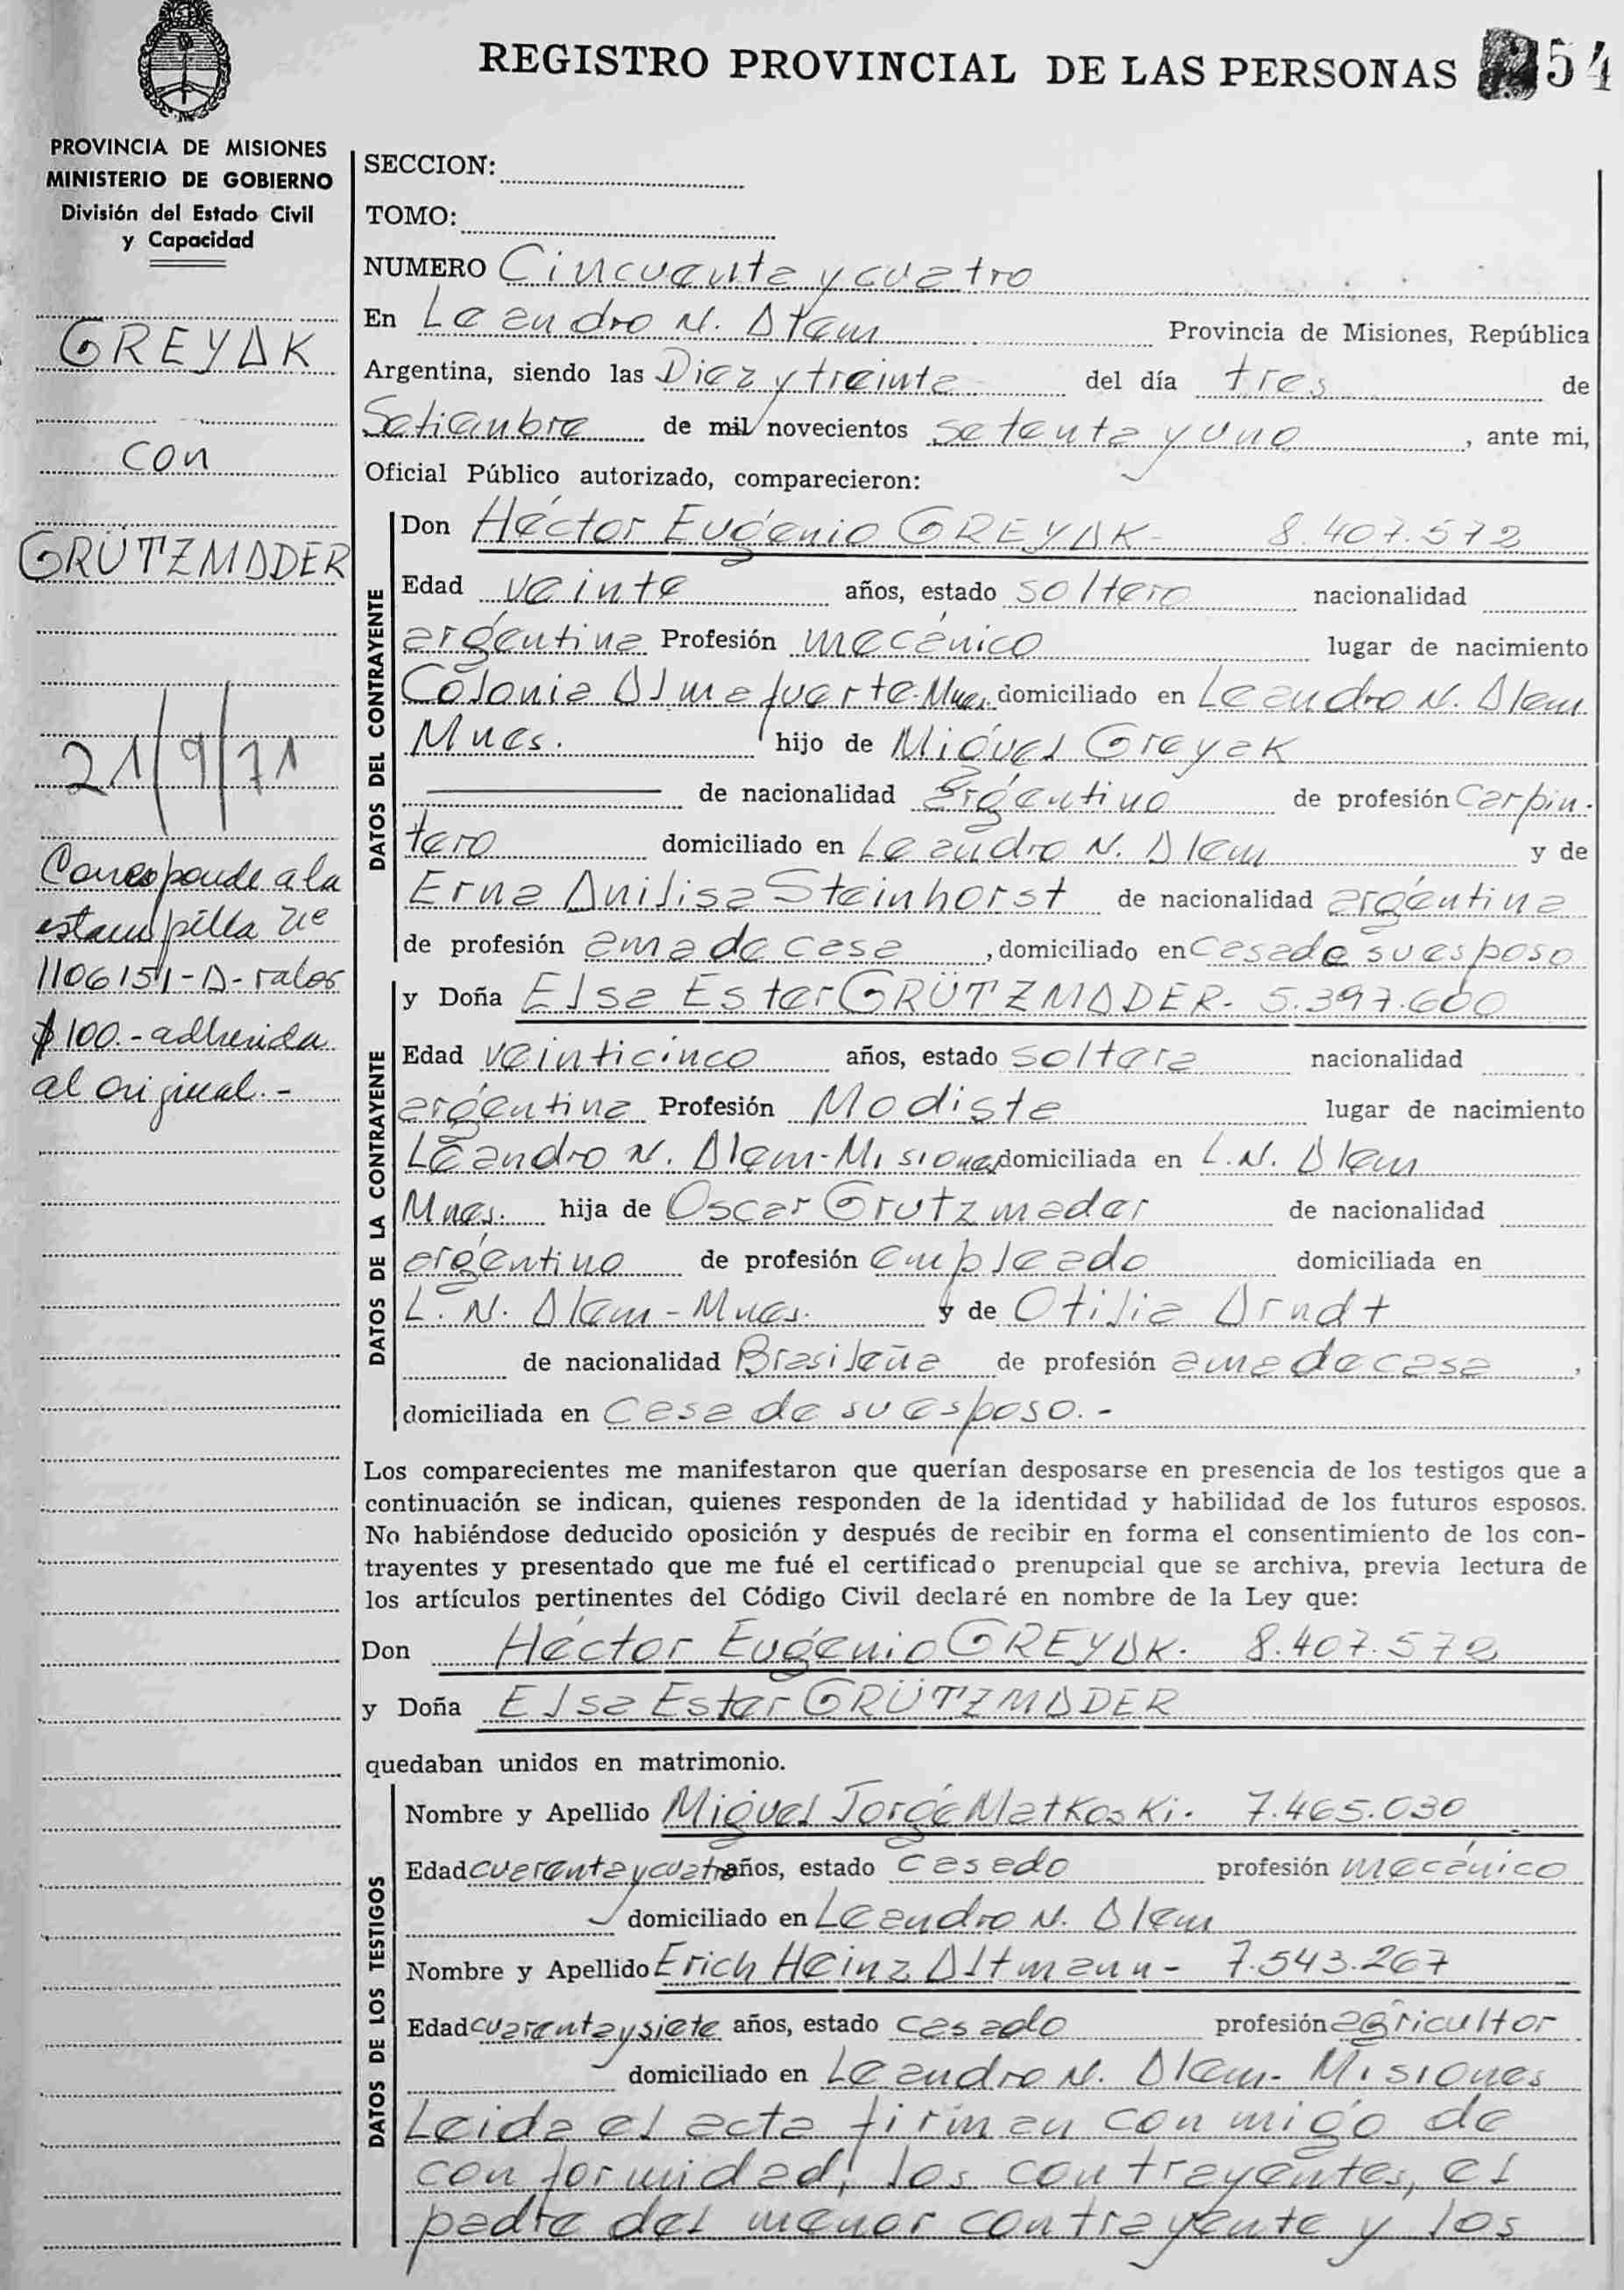 REGISTRO PROVINCIAL DE LAS PERSONAS 54
PROVINCIA DE MISIONES
MINISTERIO DE GOBIERNO
División del Estado Civil
y Capacidad
GREYAK
con
GRÜTZMADER
21/9/71
Corresponde a la
estampilla Nº
1106151-A-valor
$100.- adherida
al original.-
SECCION:
TOMO:
NUMERO Cincuenta y cuatro
En Leandro N. Alem Provincia de Misiones, República
Argentina, siendo las Diez y treinta del día tres de
Setiembre de mil novecientos setenta y uno, ante mi,
Oficial Público autorizado, comparecieron:
DATOS DEL CONTRAYENTE
Don Héctor Eugenio GREYAK- 8.407.572
Edad veinte años, estado soltero nacionalidad
argentina Profesión mecánico lugar de nacimiento
Colonia Almafuerte-Mnes. domiciliado en Leandro N. Alem
Mnes. hijo de Miguel Greyak
de nacionalidad argentino de profesión Carpin-
tero domiciliado en Leandro N. Alem y de
Erna Anilisa Steinhorst de nacionalidad argentina
de profesión ama de casa, domiciliado en Casa de su esposo
DATOS DE LA CONTRAYENTE
y Doña Elsa Ester GRÜTZMADER- 5.397.600
Edad veinticinco años, estado soltera nacionalidad
argentina Profesión Modista lugar de nacimiento
Leandro N. Alem-Misiones domiciliada en L.N. Alem
Mnes. hija de Oscar Grutzmader de nacionalidad
argentino de profesión empleado domiciliada en
L. N. Alem-Mnes. y de Otilia Arndt
de nacionalidad Brasileña de profesión ama de casa,
domiciliada en Casa de su esposo.-
Los comparecientes me manifestaron que querían desposarse en presencia de los testigos que a
continuación se indican, quienes responden de la identidad y habilidad de los futuros esposos.
No habiéndose deducido oposición y después de recibir en forma el consentimiento de los con-
trayentes y presentado que me fué el certificado prenupcial que se archiva, previa lectura de
los artículos pertinentes del Código Civil declaré en nombre de la Ley que:
Don Héctor Eugenio GREYAK. 8.407.572
y Doña Elsa Ester GRÜTZMADER
quedaban unidos en matrimonio.
DATOS DE LOS TESTIGOS
Nombre y Apellido Miguel Jorge Matkoski. 7.465.030
Edad cuarenta y cuatro años, estado casado profesión mecánico
domiciliado en Leandro N. Alem
Nombre y Apellido Erich Heinz Altmann- 7.543.267
Edad cuarenta y siete años, estado casado profesión agricultor
domiciliado en Leandro N. Alem- Misiones
Leida el acta firman conmigo de
conformidad, los contrayentes, el
padre del menor contrayente y los